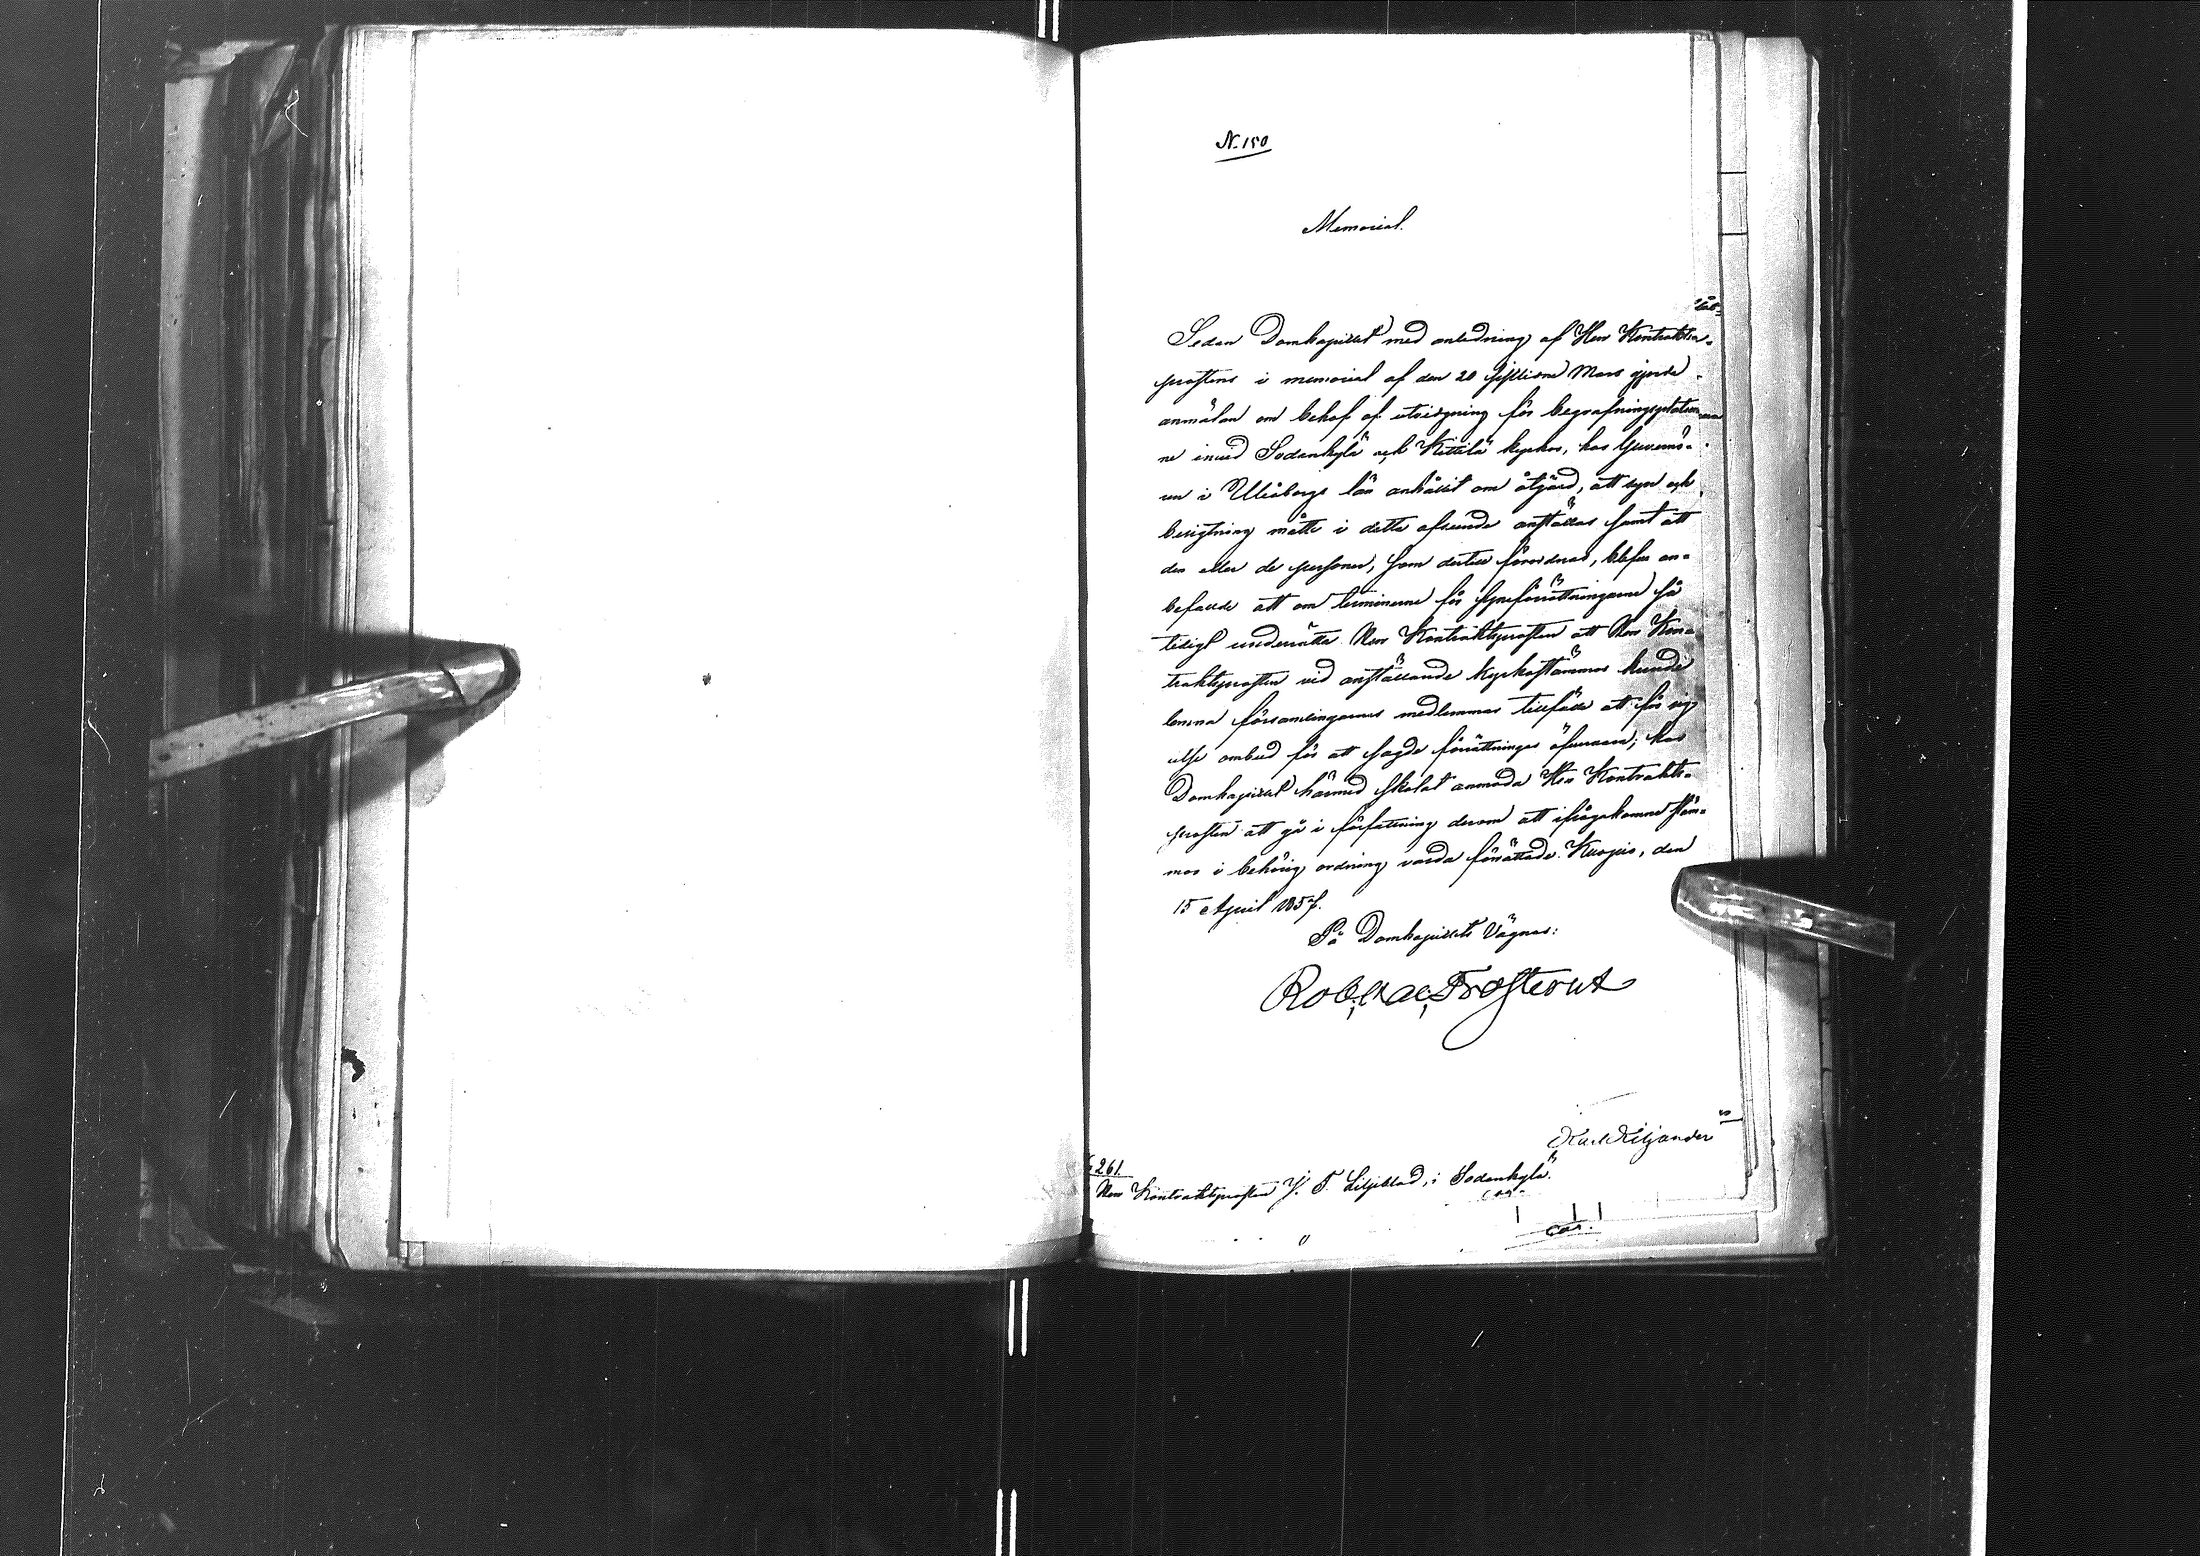 N. 150
Memorial.
Sedan Domkapitlet med anledning af Herr Kontrakts-
prostens i memorial af den 20 sistlidne Mars gjorde
anmälan om behof af utvidgning för begrafningsplatser-
ne invid Sodankylä och Kittilä kyrkor, hos Guvernö-
ren i Uleåborgs län anhållit om åtgärd, att syn och
besigtning måtte i detta afseende anställas samt att
den eller de personer, som dertill förordnas, blefve an-
befalde att om terminerne för syneförrättningarne så
tidigt underrätta Herr Kontraktsprosten att Herr Kon-
traktsprosten vid anställande kyrkostämmor kunde
lemna församlingarnes medlemmar tillfälle att för sig
utse ombud för att sagde förrättningar öfvervara; har
Domkapitlet härmed skolat anmoda Herr Kontrakts-
prosten att gå i författning derom att ifrågakomne stäm-
mor i behörig ordning varda förrättade. Kuopio, den
15 April 1857.
På Domkapitlets Vägnar:
Rob. Val. Frosterus
Karl Kiljander
261.
Herr Kontraktsprosten J. F. Liljeblad, i Sodankylä.